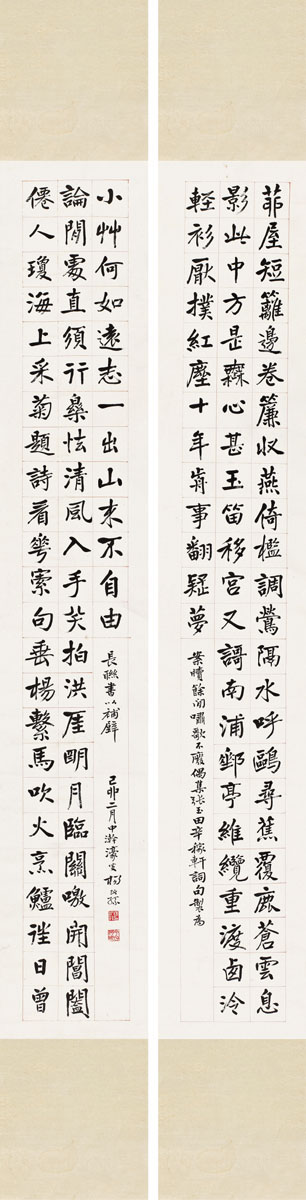 茆屋短籬邊卷簾收燕倚檻調鶯隔水呼鷗尋蕉覆鹿蒼雲息
影此中方是橆心甚玉笛移宮又謌南浦郵亭維纜重渡西泠
輕衫厭撲紅塵十年歬事翻疑夢
案牘餘閑嘯歌不廢偶集張玉田辛稼軒詞句製為
僊人瓊海上采菊題詩看花索句垂楊繫馬吹火烹鱸往日曾
論閒處直須行樂清風入手笑拍洪厓明月臨關噭開閶闔
小艸何如遠志一出山來不自由
長聯書以補壁
己卯二月中澣濠叟楊沂孫